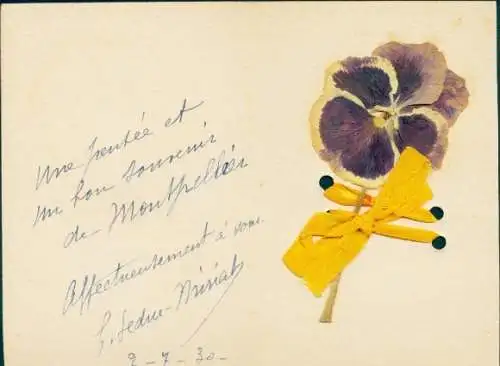 Une pensée et
un bon souvenir
de Montpellier
Affectueusement à vous
2-7-30-